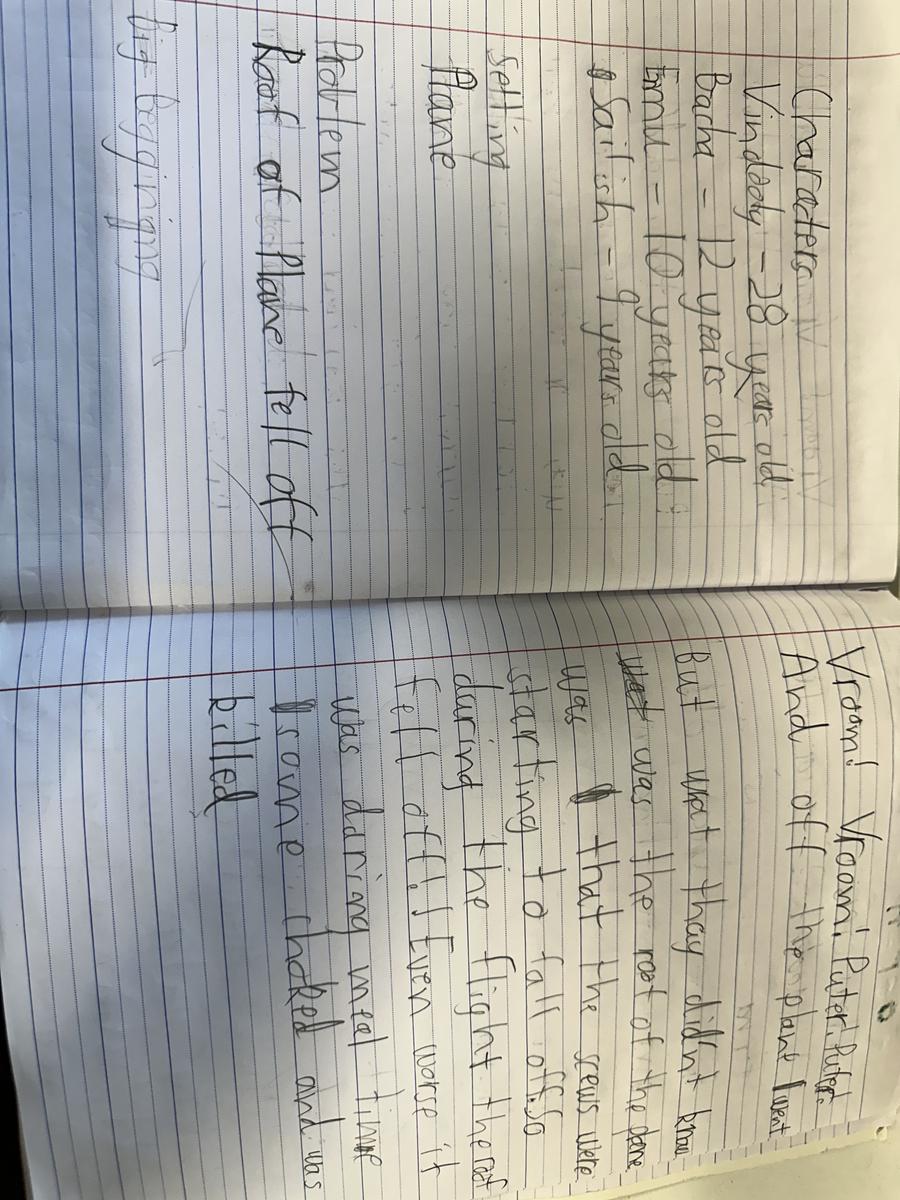 Characters
Vindody - 28 years old
Bacha - 12 years old
Emu - 10 years old
Sailish - 9 years old
Setting
Plane
Problem
Roof of Plane fell off
Big Beggining
Vroom! Vroom! Puter! Puter.
And off the plant went
But what thay didn't know
was the roof of the plane
was that the screws were
starting to fall off. So
during the flight the roof
fell off! Even worse it
was during meal time
some choked and was
killed